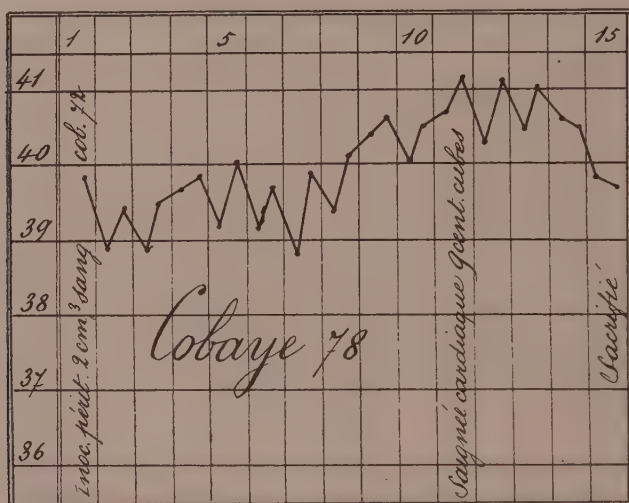 1 5 10 15
41
40
39
38
37
36
inoc. périt. 2 cm³ sang cob. 72
Cobaye 78
Saignée cardiaque 9 cent. cubes
Sacrifié